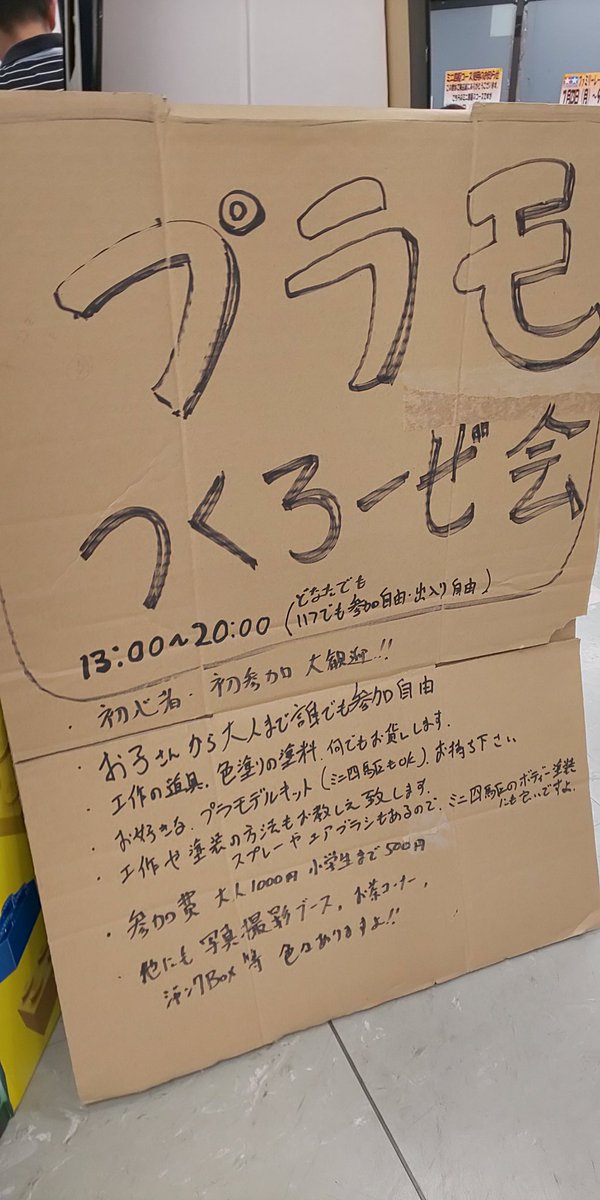 プラモ
つくろーぜ会
13:00~20:00 (どなたでも
いつでも参加自由・出入り自由)
・初心者・初参加 大歓迎!!
・お子さんから大人まで誰でも参加自由
・工作の道具、色塗りの塗料、何でもお貸しします。
・お好きな、プラモデルキット(ミニ四駆もOK)、お持ち下さい
・工作や塗装の方法もお教え致します。
スプレーやエアブラシもあるので、ミニ四駆のボディー塗装
にも良いですよ。
・参加費 大人1000円 小学生まで500円
・他にも 写真撮影ブース。お茶コーナー。
ジャンクBox等 色々ありますよ!!